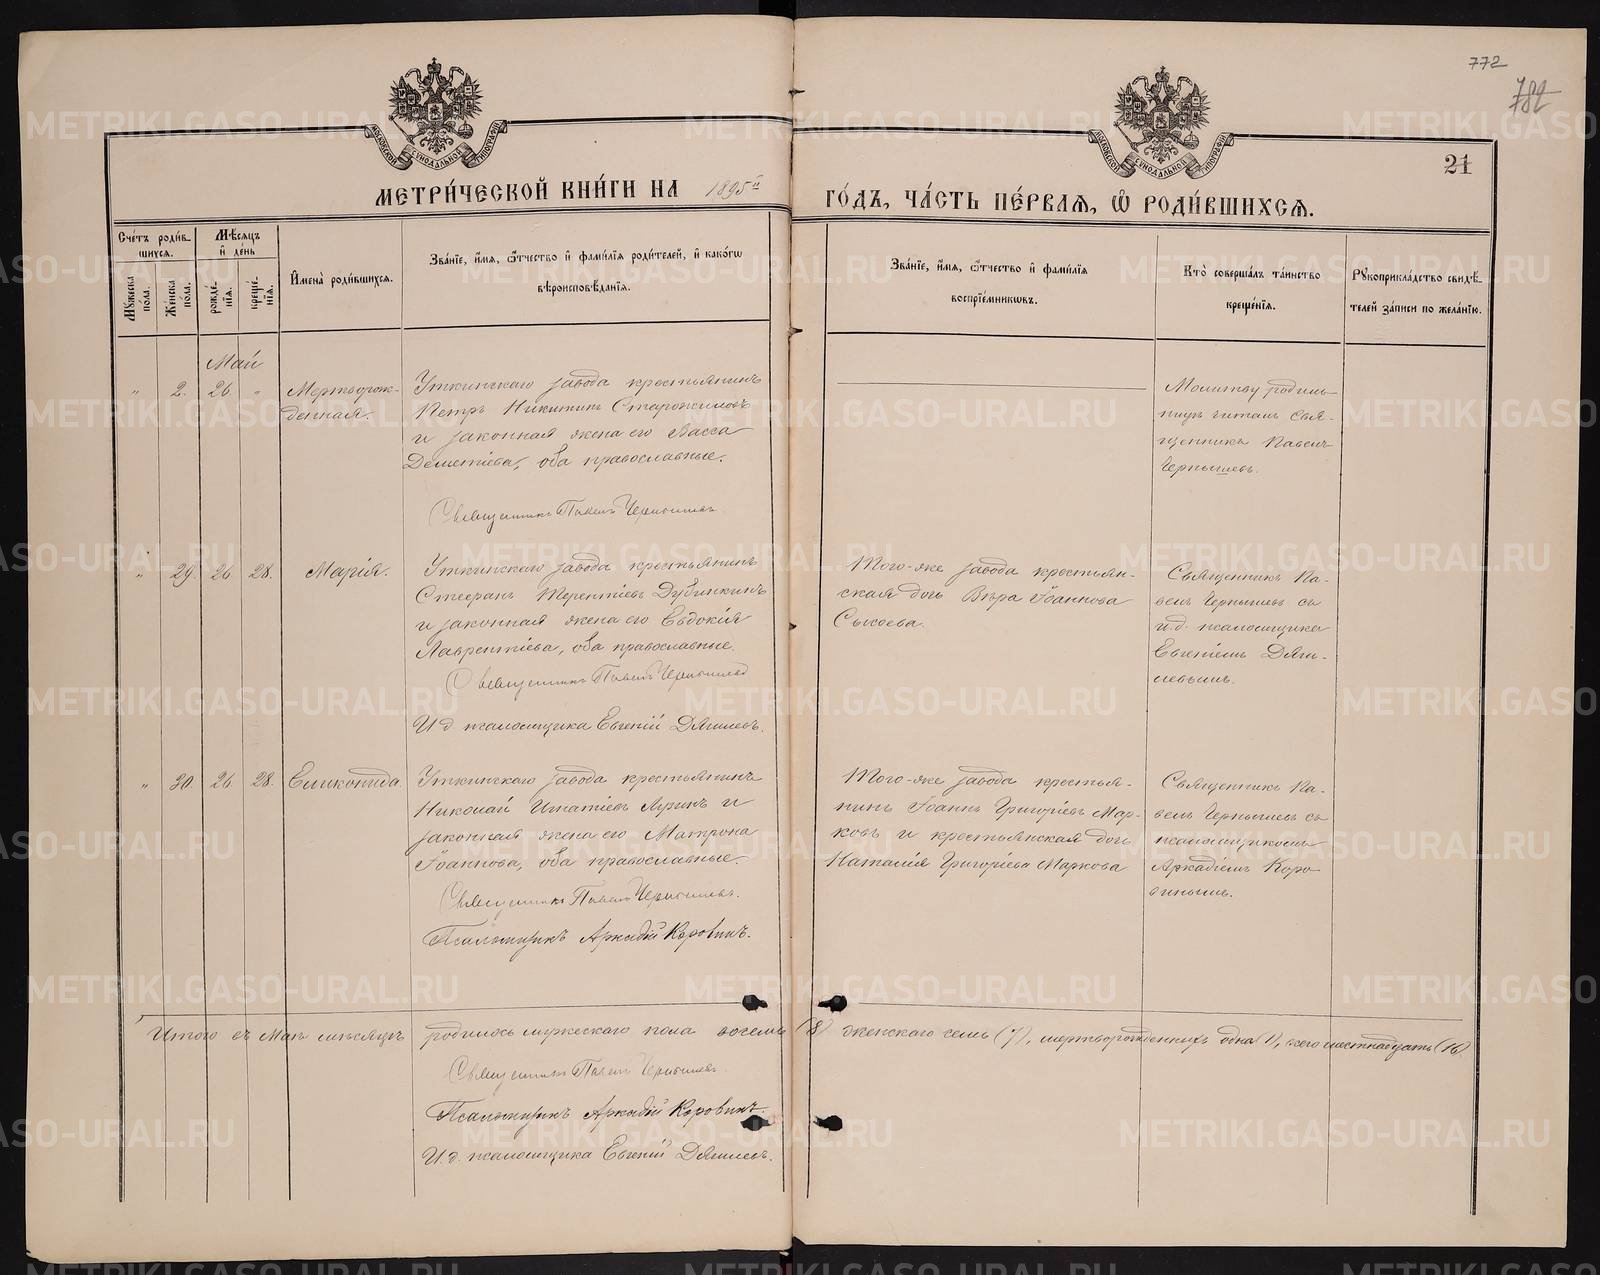 772
782
МОСКОВСКОЙ СѴНОДАЛЬНОЙ ТИПОГРАФІИ
МОСКОВСКОЙ СѴНОДАЛЬНОЙ ТИПОГРАФІИ
21
МЕТРИ́ЧЕСКОЙ КНИ́ГИ НА 1895й
ГО́ДЪ, ЧА́СТЬ ПЕ́РВАЯ, Ѽ РОДИ́ВШИХСЯ.
Сче́тъ роди́в-
шихся.
Му́жеска по́ла.
Же́нска по́ла.
Мѣ́сяцъ
и҆ де́нь
рожде́-
нїя.
креще́-
нїя.
И҆мена̀ роди́вшихся.
Зва́нїе, и҆́мя, ѻ҆́тчество и҆ фами́лїя роди́телей, и҆ како́гѡ
вѣроисповѣ́данїя.
Зва́нїе, и҆́мя, ѻ҆́тчество и҆ фами́лїя
воспрїе́мникѡвъ.
Кто̀ соверша́лъ та́инство
креще́нїя.
Рꙋкоприкла́дство свидѣ́-
телей за́писи по жела́нїю.
Май
" 2. 26. "
Мертворож-
денная.
Уткинскаго завода крестьянинъ
Петръ Никитинъ Старожиловъ
и законная жена его Васса
Дементіева, оба православные.
Священникъ Павелъ Чернышевъ.
Молитву родиль-
ницѣ читалъ Свя-
щенникъ Павелъ
Чернышевъ.
" 29. 26 28.
Марія.
Уткинскаго завода крестьянинъ
Стефанъ Терентіевъ Дубинкинъ
и законная жена его Евдокія
Лаврентіева, оба православные.
Священникъ Павелъ Чернышевъ
И. д. псаломщика Евгеній Дягилевъ.
Того-же завода крестьян-
ская дочь Вѣра Іоаннова
Сысоева.
Священникъ Па-
велъ Чернышевъ съ
и. д. псаломщика
Евгеніемъ Дяги-
левымъ.
" 30. 26. 28.
Епиктида.
Уткинскаго завода крестьянинъ
Николай Игнатіевъ и
законная жена его Матрона
Іоаннова, оба православные.
Священникъ Павелъ Чернышевъ.
Псаломщикъ Аркадій Коровинъ.
Того-же завода крестья-
нинъ Іоаннъ Григоріевъ Мар-
ковъ и крестьянская дочь
Наталія Григоріева Маркова
Священникъ Па-
велъ Чернышевъ съ
псаломщикомъ
Аркадіемъ Коро-
винымъ.
Итого въ Маѣ мѣсяцѣ родилось мужескаго пола восемь (8) женскаго семь (7), мертворожденныхъ одна (1), всего шестнадцать (16)
Священникъ Павелъ Чернышевъ.
Псаломщикъ Аркадій Коровинъ.
И. д. псаломщика Евгеній Дягилевъ.
METRIKI.GASO-URAL.RU